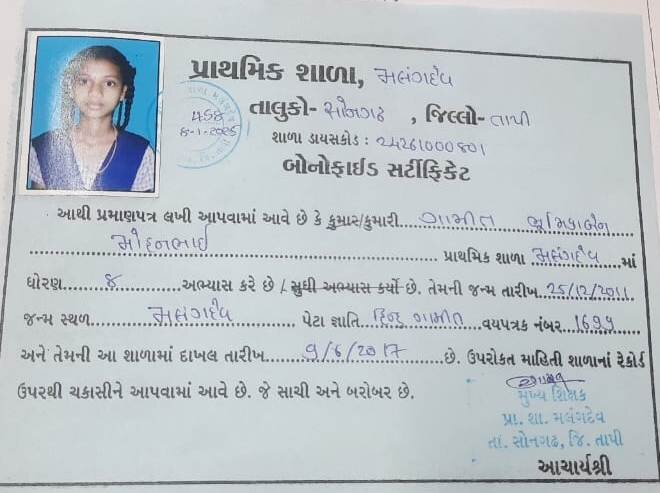 પ્રાથમિક શાળા, મલંગદેવ
તાલુકો- સોનગઢ , જિલ્લો- તાપી
458
8-1-2025
શાળા ડાયસકોડ : 24261000801
બોનોફાઈડ સર્ટીફિકેટ
આથી પ્રમાણપત્ર લખી આપવામાં આવે છે કે કુમાર/કુમારી....ગામીત ભૂમિકાબેન
મોહનભાઈ પ્રાથમિક શાળા મલંગદેવ માં
ધોરણ.......8..........અભ્યાસ કરે છે / સુધી અભ્યાસ કર્યો છે. તેમની જન્મ તારીખ..25/12/2011..
જન્મ સ્થળ........મલંગદેવ........ પેટા જ્ઞાતિ..હિન્દુ ગામીત..વયપત્રક નંબર..1699....
અને તેમની આ શાળામાં દાખલ તારીખ.....9/6/2017.......છે. ઉપરોકત માહિતી શાળાનાં રેકોર્ડ
ઉપરથી ચકાસીને આપવામાં આવે છે. જે સાચી અને બરોબર છે.
મુખ્ય શિક્ષક
પ્રા. શા. મલંગદેવ
તા. સોનગઢ, જિ. તાપી
આચાર્યશ્રી